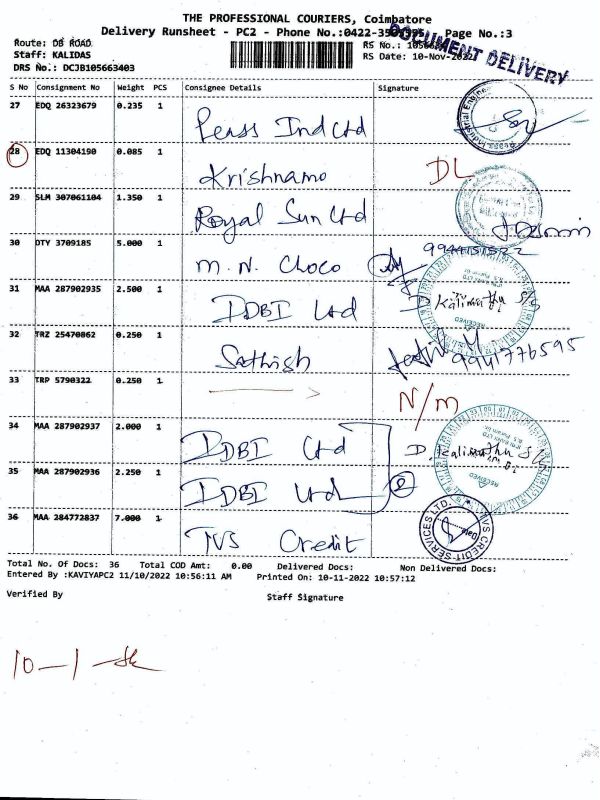 THE PROFESSIONAL COURIERS, Coimbatore
Delivery Runsheet - PC2 - Phone No.:0422- Page No.:3
DOCUMENT DELIVERY
Route: DB ROAD
Staff: KALIDAS RS Date: 10-Nov-2022
DRS No.: DCJB105663403
S No Consignment No Weight PCS Consignee Details Signature
27 EDQ 26323679 0.235 1 Peass Ind Ltd
28 EDQ 11304190 0.085 1 Krishnamo DL
29 SLM 307061104 1.350 1 Royal Sun Ltd
30 DTY 3709185 5.000 1 M.N. Choco
31 MAA 287902935 2.500 1 IDBI Ltd D. Kalimuthu S/g
32 TRZ 25470862 0.250 1 Sathish 9941776595
33 TRP 5790322 0.250 1 N/m
34 MAA 287902937 2.000 1 IDBI Ltd D. Kalimuthu S/g
35 MAA 287902936 2.250 1 IDBI Ltd 2
36 MAA 284772837 7.000 1 TVS Credit
TVS CREDIT SERVICES LTD.
Total No. Of Docs: 36 Total COD Amt: 0.00 Delivered Docs: Non Delivered Docs:
Entered By :KAVIYAPC2 11/10/2022 10:56:11 AM Printed On: 10-11-2022 10:57:12
Verified By Staff Signature
10-1